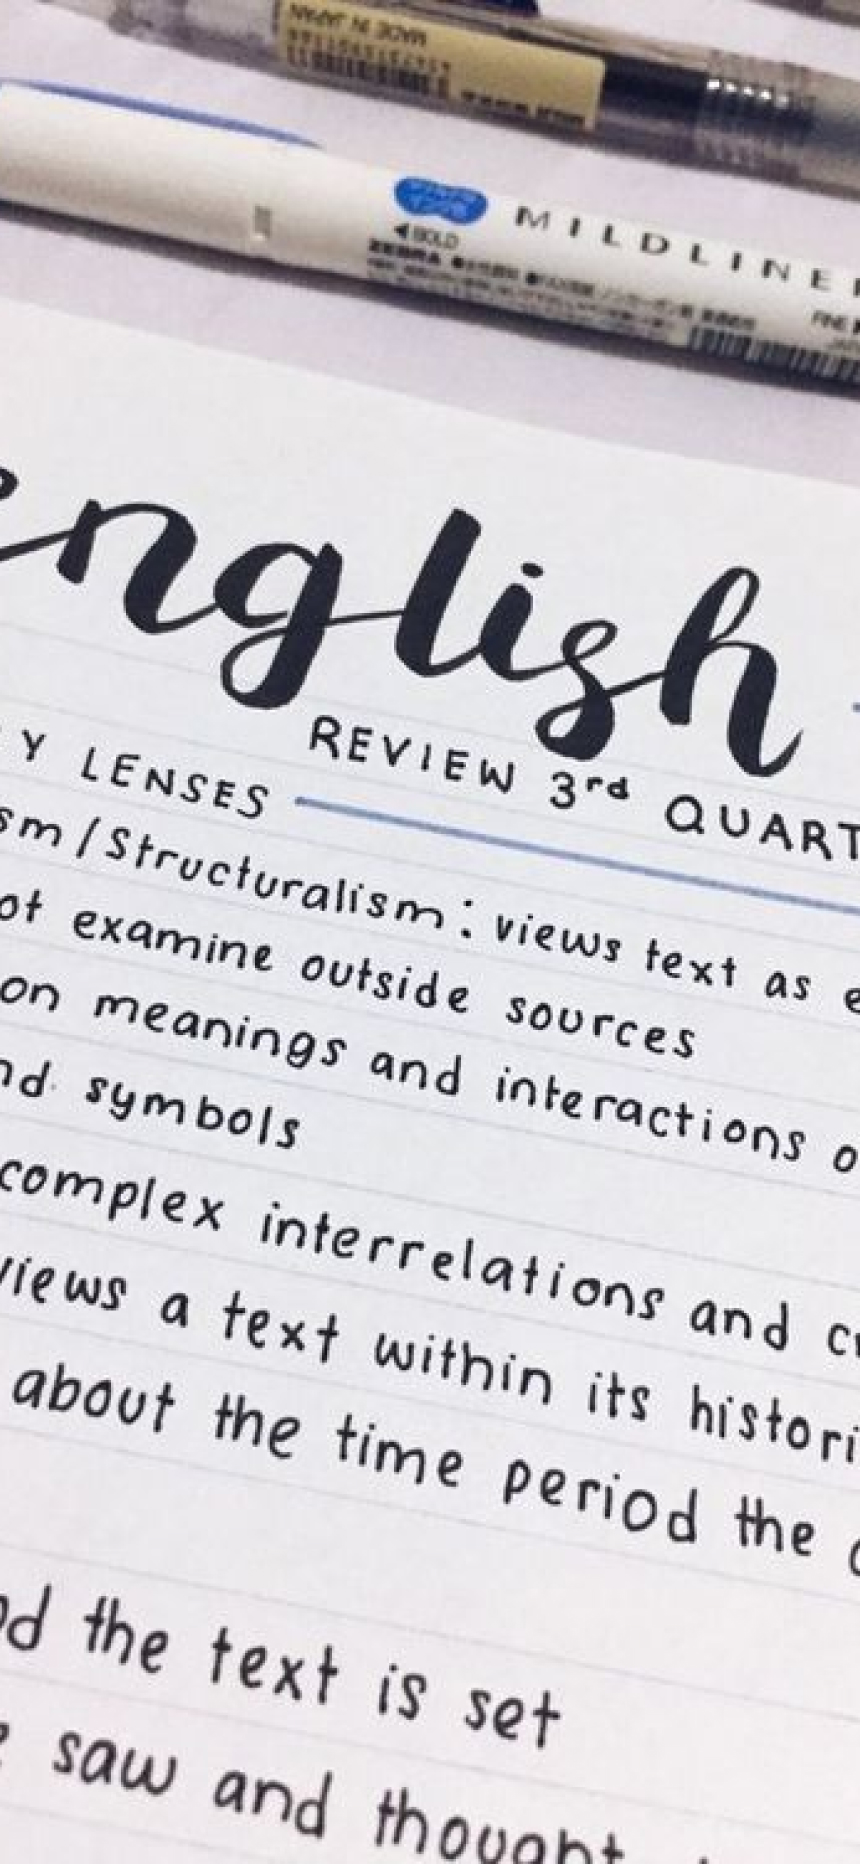 MADE IN JAPAN
MILDLINE
BOLD
ZEBRA
FINE
english
REVIEW 3rd QUART
Y LENSES
sm/Structuralism: views text as e
ot examine outside sources
on meanings and interactions o
nd symbols
complex interrelations and c
views a text within its histori
about the time period the
d the text is set
saw and thought